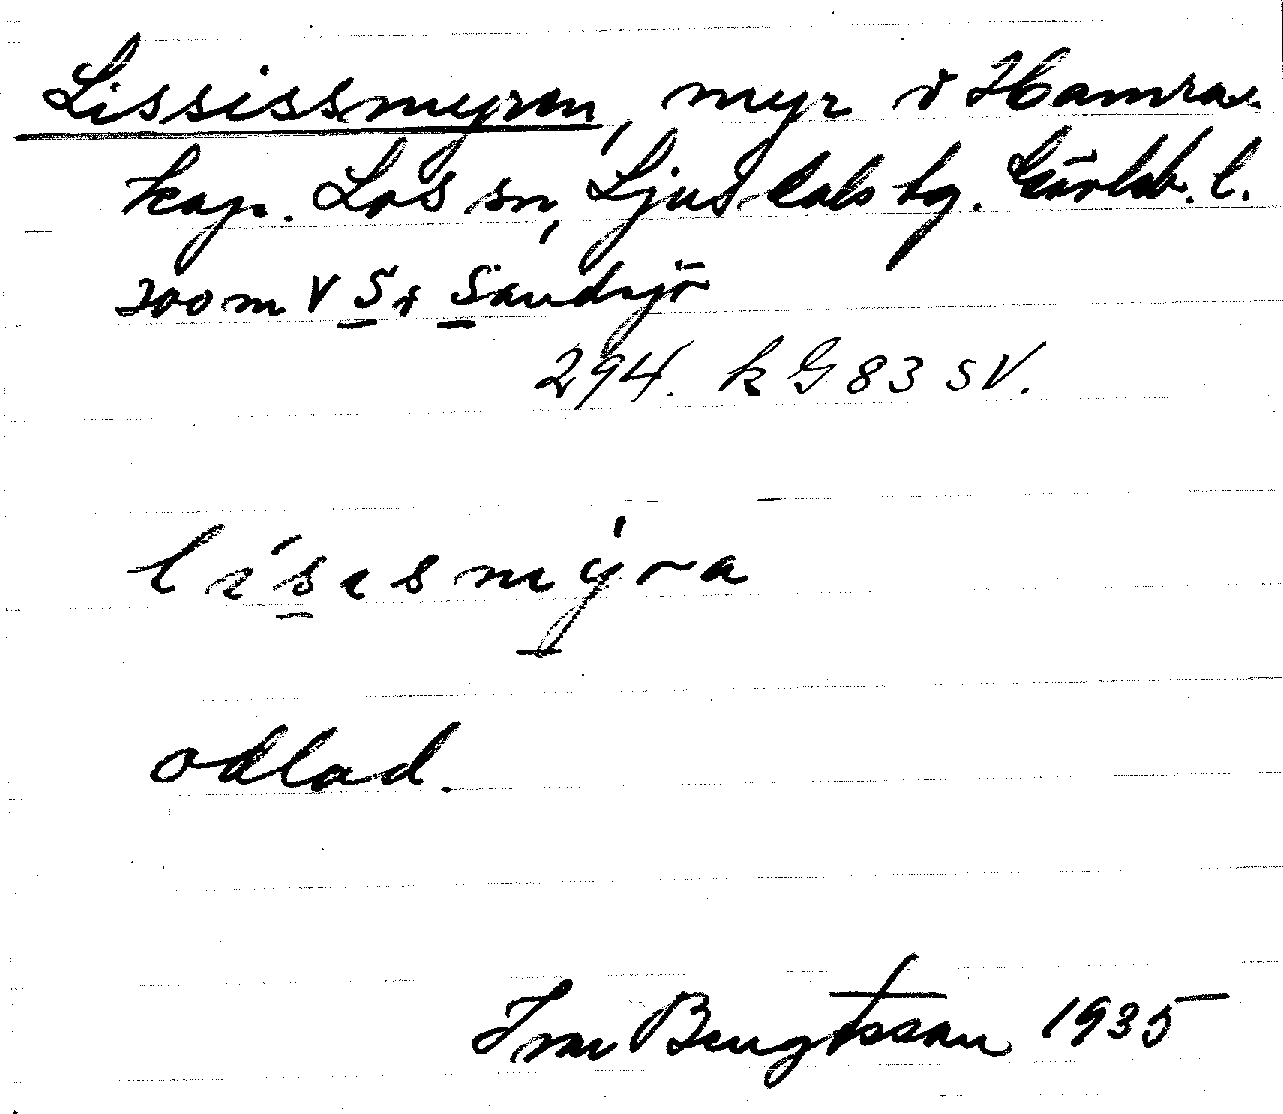 Lississmyran, myr i Hamra
kap. Los sn, Ljusdals tg. Gävleb. l.
200 m V S Sandsjö
294. k G 83 SV.
lísismýra
odlad.
Ivar Bengtsson 1935